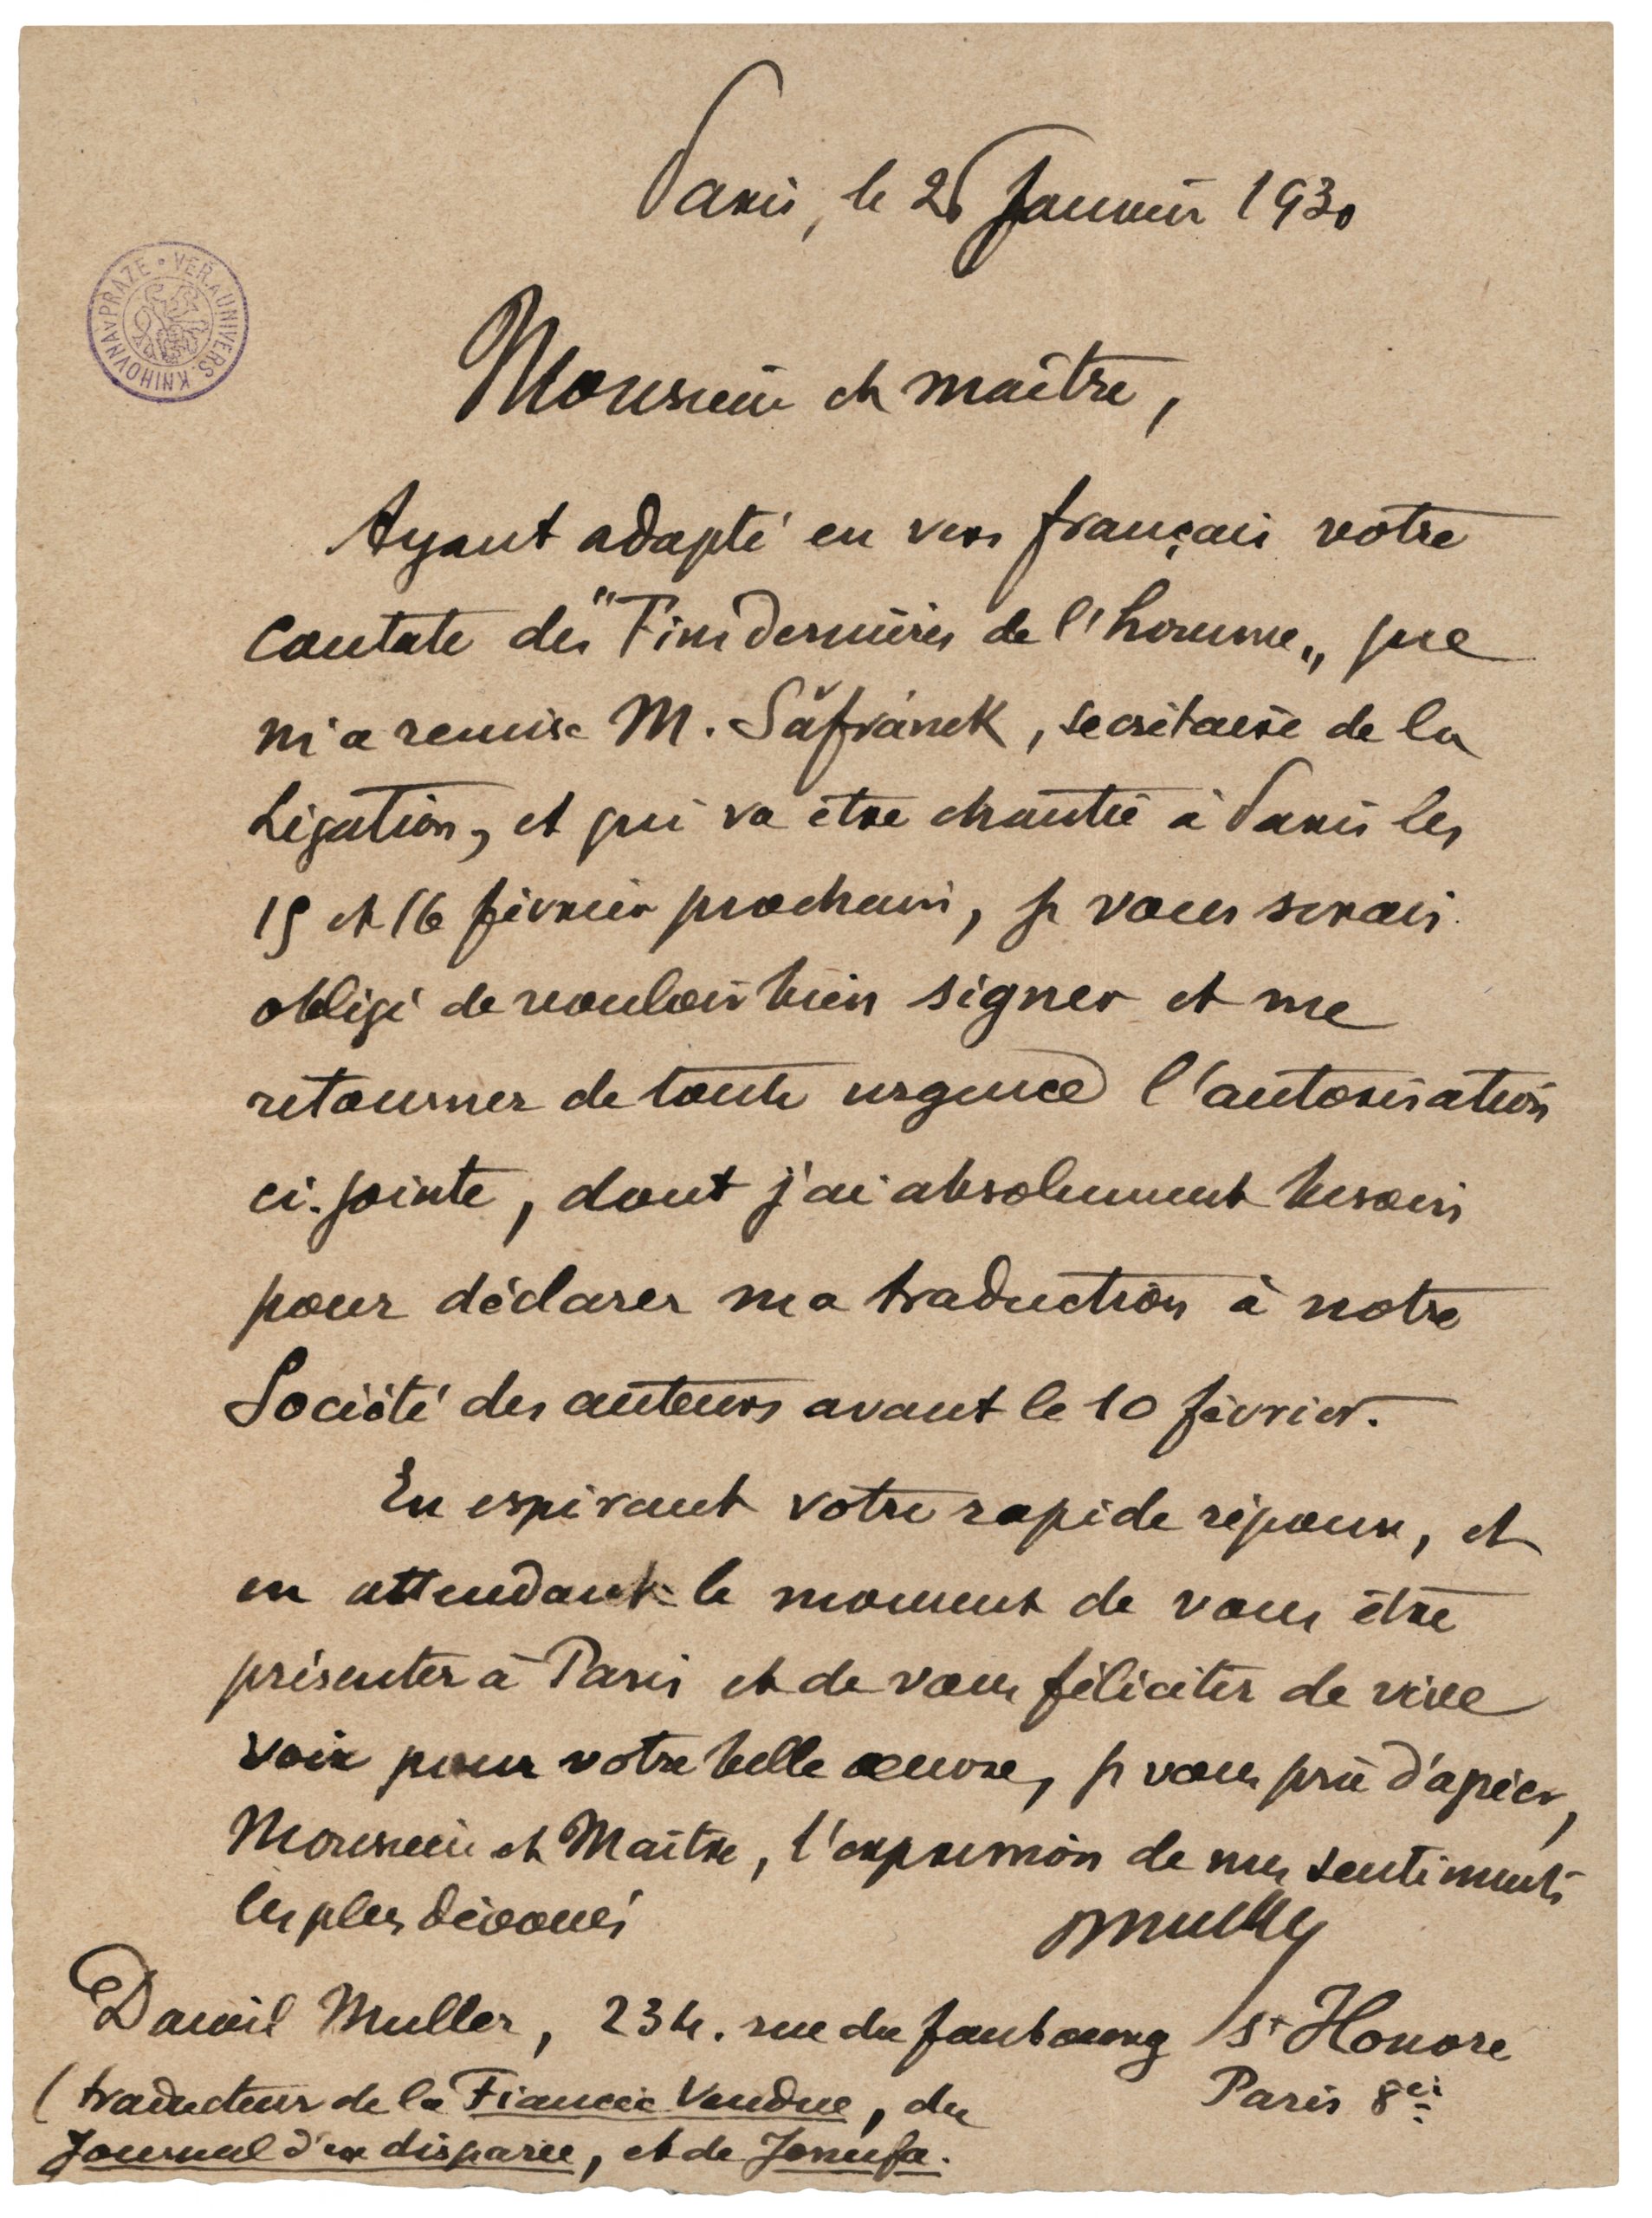 Paris, le 26 Janvier 1930
VEŘ. A UNIVERS. KNIHOVNA V PRAZE
Monsieur et maître,
Ayant adapté en vers français votre
Cantate des "Fins dernières de l'homme", que
m'a remise M. Šafránek, secrétaire de la
Légation, et qui va être chantée à Paris les
15 et 16 février prochain, je vous serais
obligé de vouloir bien signer et me
retourner de toute urgence l'autorisation
ci-jointe, dont j'ai absolument besoin
pour déclarer ma traduction à notre
Société des auteurs avant le 10 février.
En espérant votre rapide réponse, et
en attendant le moment de vous être
présenter à Paris et de vous féliciter de vive
voix pour votre belle œuvre, je vous prie d'agréer,
Monsieur et Maître, l'expression de mes sentiments
les plus dévoués
DMuller
Daniel Muller, 234. rue du faubourg St Honoré
Paris 8e
(traducteur de la Fiancée Vendue, du
Journal d'un disparu, et de Jenufa.